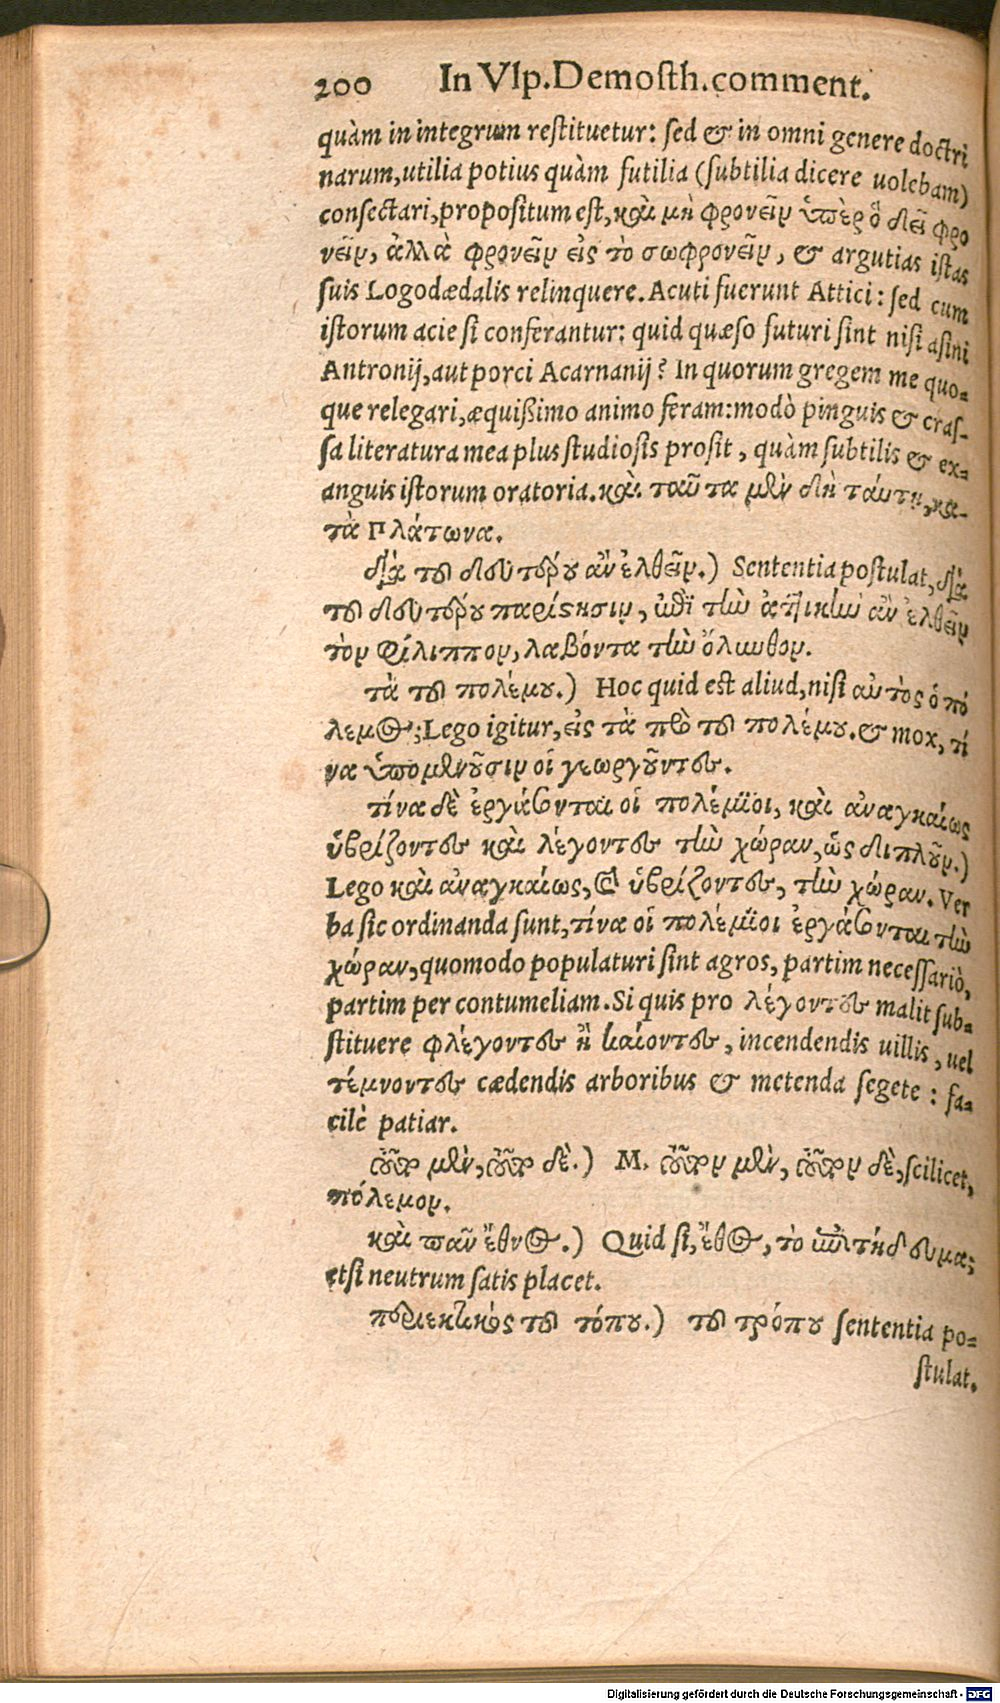 200 In Vlp. Demosth. comment.
quàm in integrum restituetur: sed & in omni genere doctri
narum, utilia potius quàm futilia (subtilia dicere uolebam)
consectari, propositum est, καὶ μὴ φρονεῖν ὑπὲρ ὃ δεῖ φρο
νεῖν, ἀλλὰ φρονεῖν εἰς τὸ σωφρονεῖν, & argutias istas
suis Logodædalis relinquere. Acuti fuerunt Attici: sed cum
istorum acie si conferantur: quid quæso futuri sint nisi asini
Antronij, aut porci Acarnanij? In quorum gregem me quo-
que relegari, æquißimo animo feram: modò pinguis & cras-
sa literatura mea plus studiosis prosit, quàm subtilis & ex-
anguis istorum oratoria. καὶ ταῦτα μὲν δὴ ταύτη, κα-
τὰ Πλάτωνα.
διὰ τοῦ δευτέρου ἀνελθεῖν.) Sententia postulat, διὰ
τοῦ δευτέρου παρίστησιν, ἐπὶ τὴν ἀττικὴν ἀνελθεῖν
τὸν Φίλιππον, λαβόντα τὴν ὄλυνθον.
τὰ τοῦ πολέμου.) Hoc quid est aliud, nisi αὐτὸς ὁ πό
λεμος; Lego igitur, εἰς τὰ πρὸ τοῦ πολέμου. & mox, τί
να ὑπομένουσιν οἱ γεωργοῦντες.
τίνα δὲ ἐργάσονται οἱ πολέμιοι, καὶ ἀναγκαίως
ὑβρίζοντες καὶ λέγοντες τὴν χώραν, ὡς διπλοῦν.)
Lego καὶ ἀναγκαίως, καὶ ὑβρίζοντες, τὴν χώραν. Ver
ba sic ordinanda sunt, τίνα οἱ πολέμιοι ἐργάσονται τὴν
χώραν, quomodo populaturi sint agros, partim necessariò,
partim per contumeliam. Si quis pro λέγοντες malit sub-
stituere φλέγοντες ἢ καίοντες, incendendis uillis, uel
τέμνοντες cædendis arboribus & metenda segete: fa-
cilè patiar.
εὗρε μὲν, εὗρε δὲ.) M. εὗρεν μὲν, εὗρεν δὲ, scilicet,
πόλεμον.
καὶ παν ἔθνος.) Quid si, ἔθος, τὸ ἐπιτήδευμα;
etsi neutrum satis placet.
περιεκτικὸς τοῦ τόπου.) τοῦ τρόπου sententia po-
stulat.
Digitalisierung gefördert durch die Deutsche Forschungsgemeinschaft - DFG